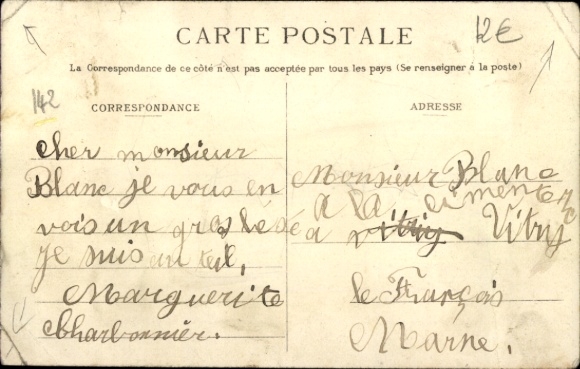 CARTE POSTALE
12€
La Correspondance de ce côté n'est pas acceptée par tous les pays (Se renseigner à la poste)
142
CORRESPONDANCE
cher monsieur
Blanc je vous en
vois un gros
je suis au
Marguerite
Charbonnier.
ADRESSE
Monsieur Blanc
a la
a vitriy Vitry
le François
Marne.